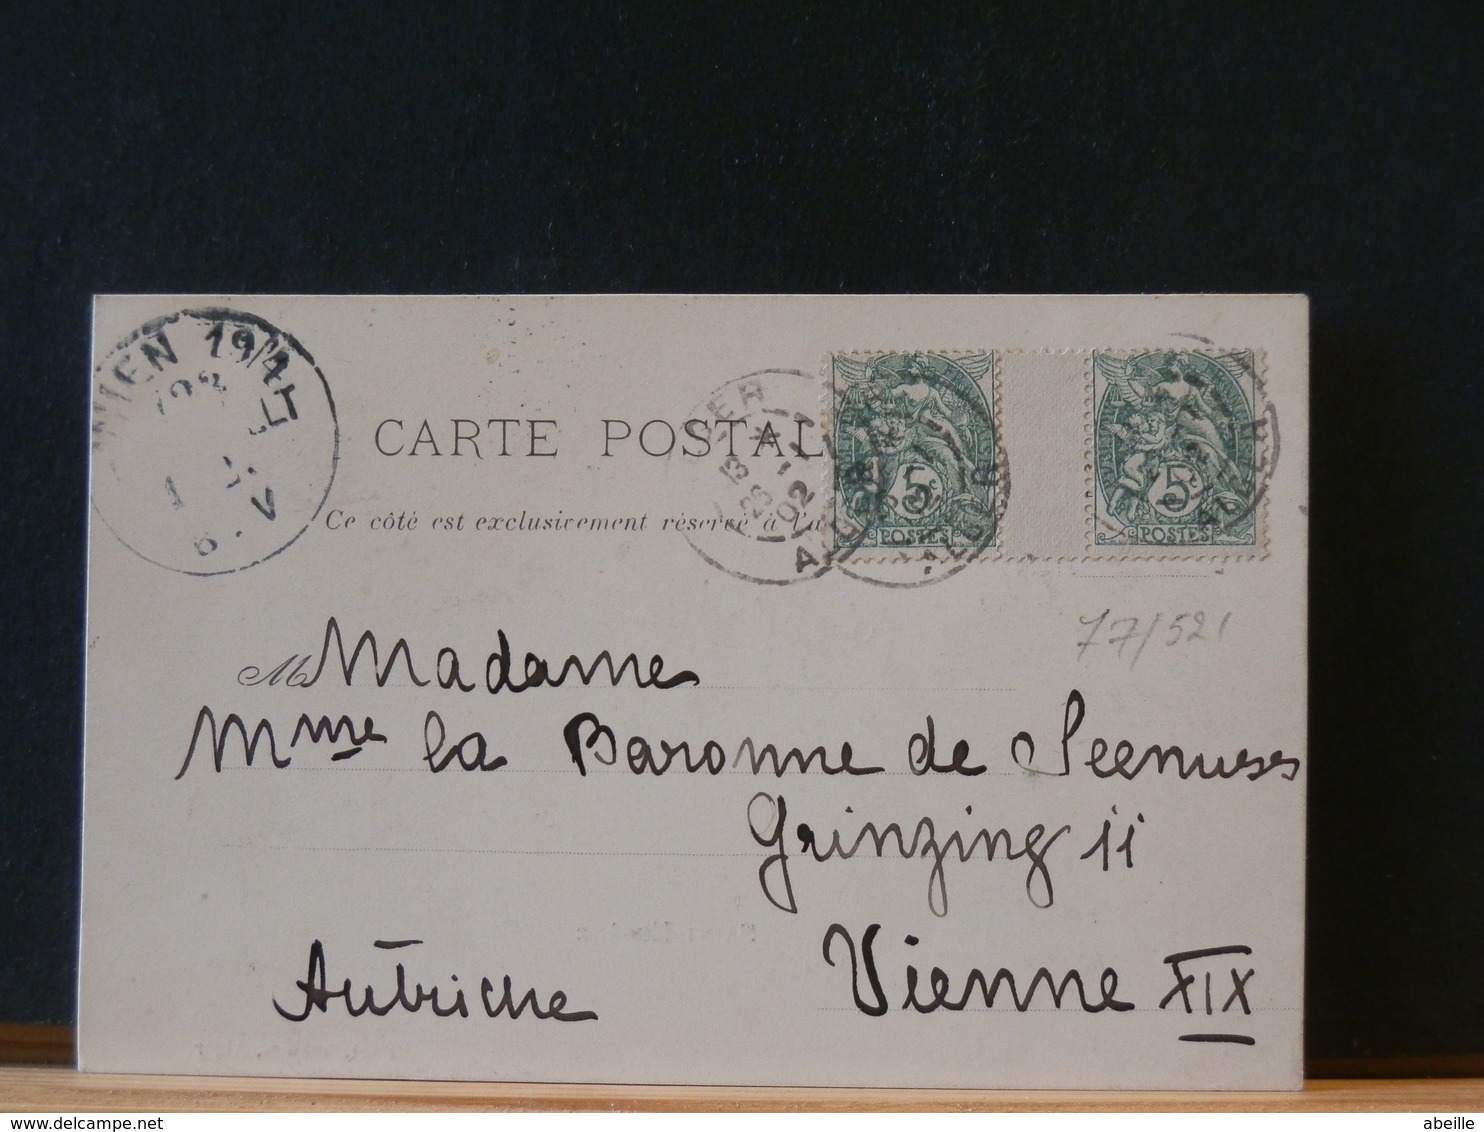 WIEN 19/1
CARTE POSTAL
Ce côté est exclusivement réservé à l'a
5
POSTES
5
POSTES
77/521
M Madame
Mme la Baronne de Seenuss
Grinzing 11
Autriche
Vienne XIX
abeille